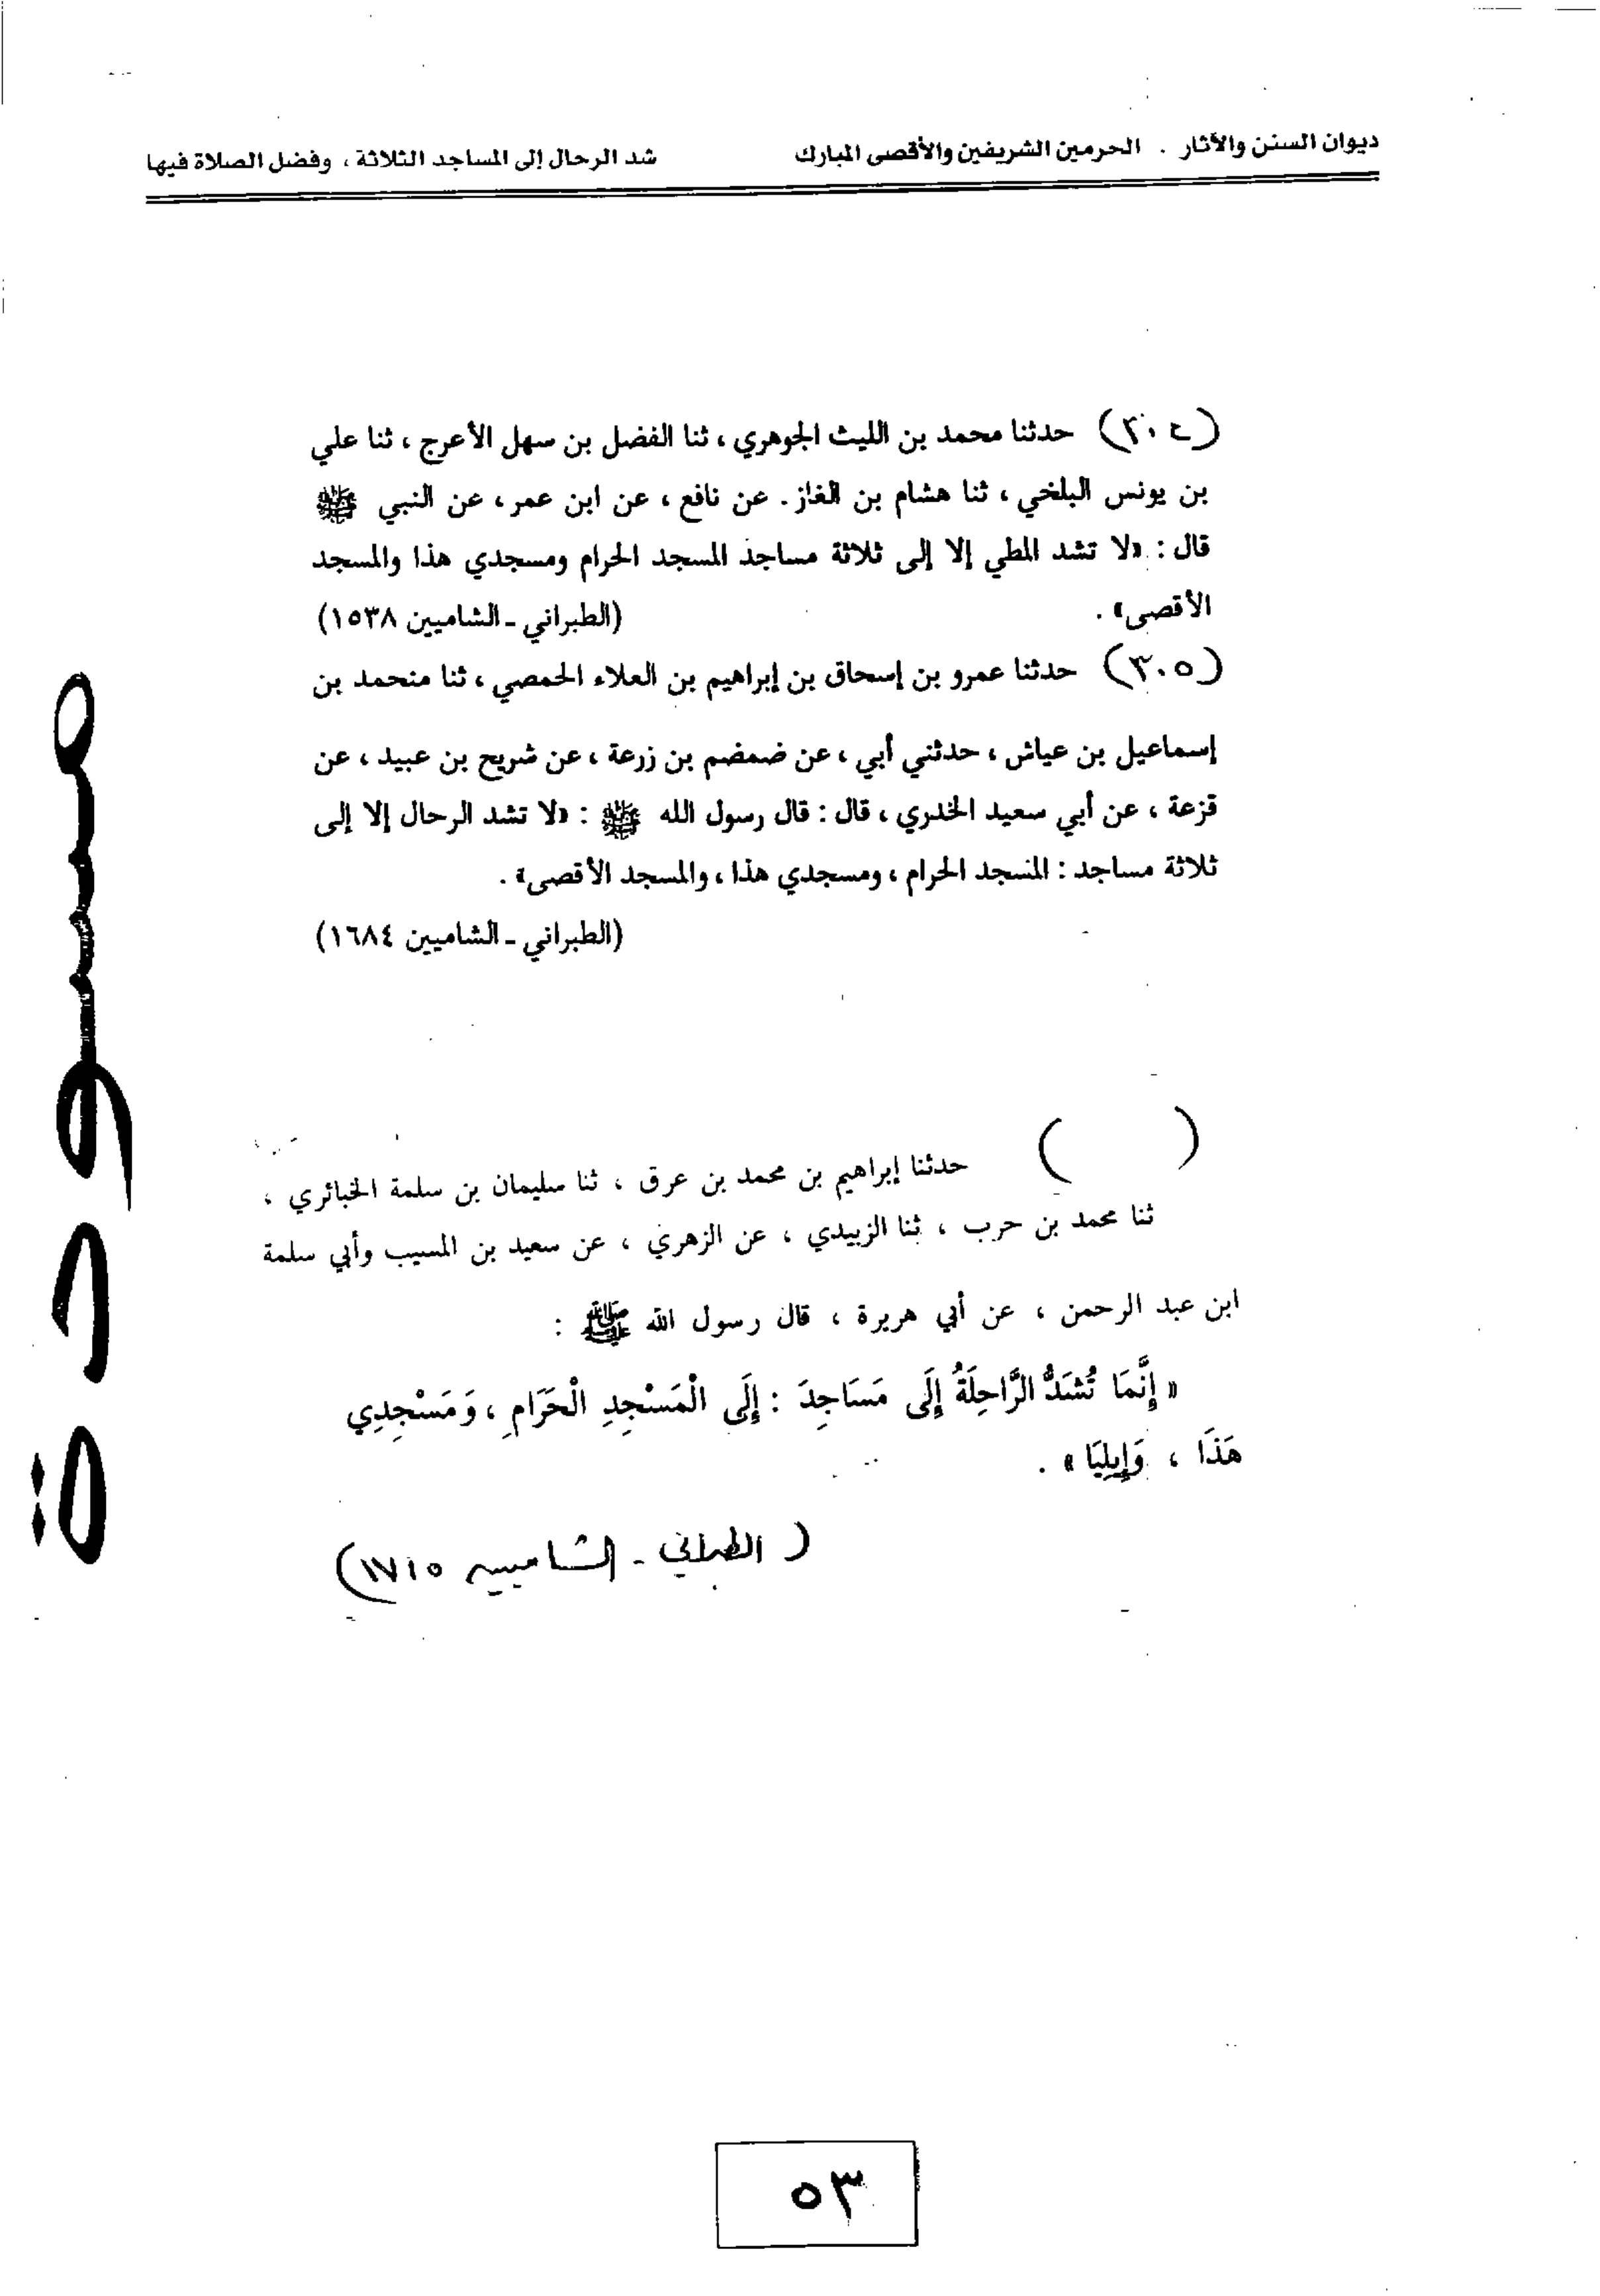 ديوان السنن والآثار . الحرمين الشريفين والأقصى المبارك شد الرحال إلى المساجد الثلاثة ، وفضل الصلاة فيها
(٣٠٤) حدثنا محمد بن الليث الجوهري ، ثنا الفضل بن سهل الأعرج ، ثنا علي
بن يونس البلخي ، ثنا هشام بن الغاز . عن نافع ، عن ابن عمر ، عن النبي ﷺ
قال : «لا تشد المطي إلا إلى ثلاثة مساجد المسجد الحرام ومسجدي هذا والمسجد
الأقصى» . (الطبراني ـ الشاميين ١٥٣٨)
(٣٠٥) حدثنا عمرو بن إسحاق بن إبراهيم بن العلاء الحمصي ، ثنا محمد بن
إسماعيل بن عياش ، حدثني أبي ، عن ضمضم بن زرعة ، عن شريح بن عبيد ، عن
قزعة ، عن أبي سعيد الخدري ، قال : قال رسول الله ﷺ : «لا تشد الرحال إلا إلى
ثلاثة مساجد : المسجد الحرام ، ومسجدي هذا ، والمسجد الأقصى» .
(الطبراني ـ الشاميين ١٦٨٤)
( ) حدثنا إبراهيم بن محمد بن عرق ، ثنا سليمان بن سلمة الخبائري ،
ثنا محمد بن حرب ، ثنا الزبيدي ، عن الزهري ، عن سعيد بن المسيب وأبي سلمة
ابن عبد الرحمن ، عن أبي هريرة ، قال رسول الله ﷺ :
« إِنَّمَا تُشَدُّ الرَّاحِلَةُ إِلَى مَسَاجِدَ : إِلَى الْمَسْجِدِ الْحَرَامِ ، وَمَسْجِدِي
هَذَا ، وَإِيلِيَا » .
( الطبراني - الشاميين ١٧١٥)
مسودة
٥٣